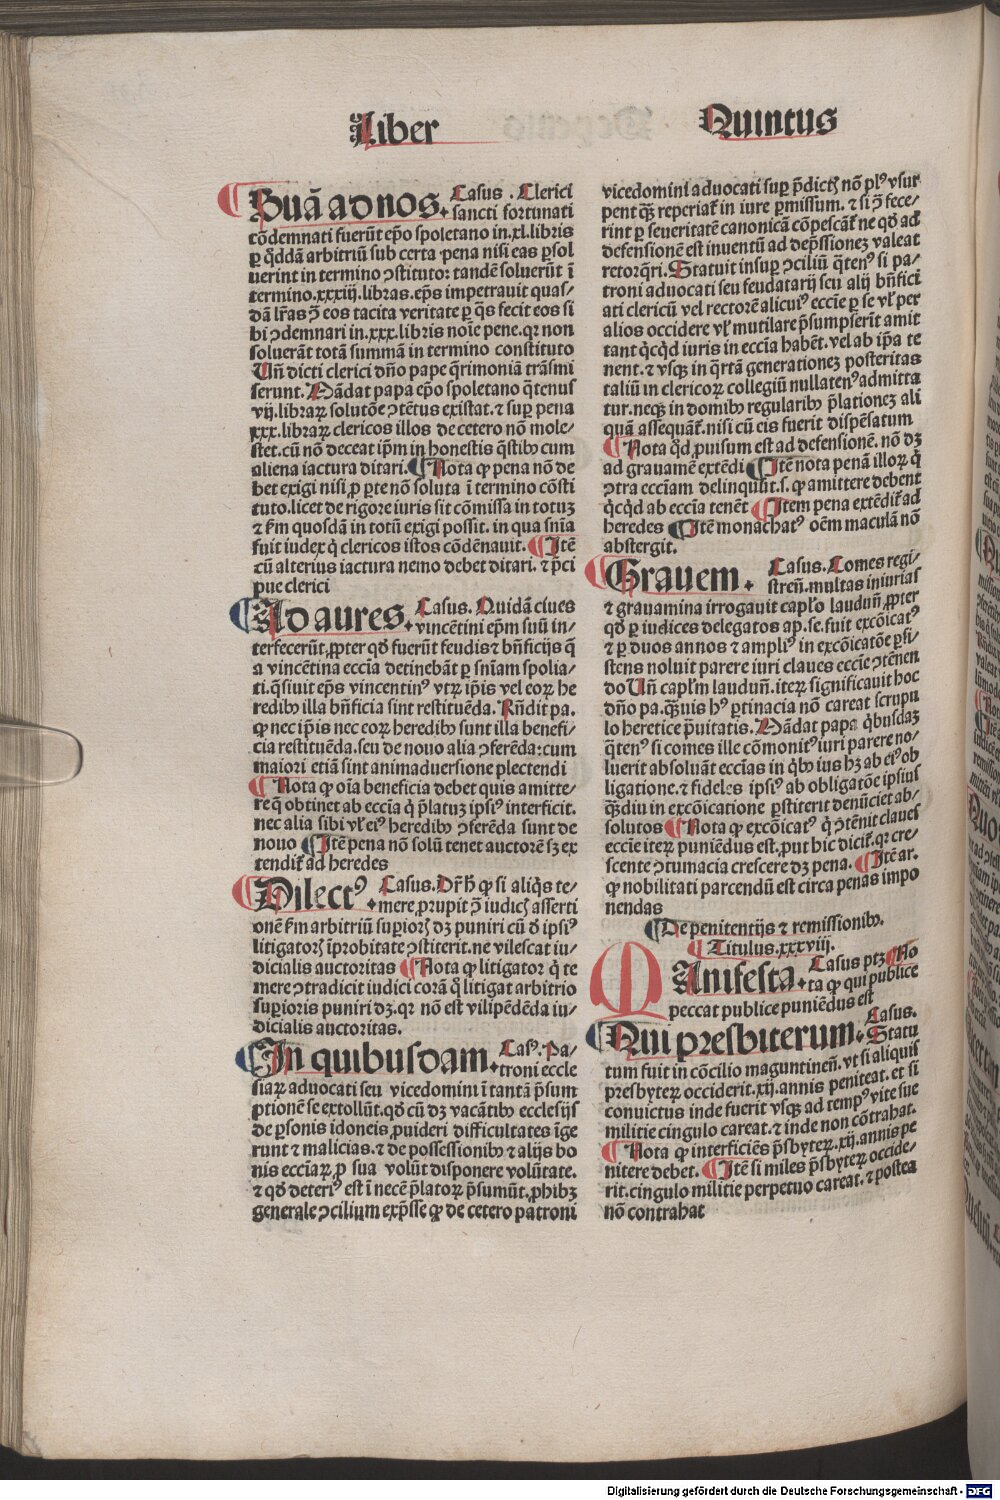 Liber
Quintus
Suā ad nos. Casus. Clerici
sancti fortunati
cōdemnati fuerūt ep̄o spoletano in.xl.libris
ꝑ qͥddā arbitriū sub certa pena nisi eas ꝑsol
uerint in termino ꝯstituto: tandē soluerūt ī
termino.xxxiij.libras.ep̄s impetrauit quas/
dā lr̄as ꝯ̄ eos tacita veritate ꝑ qͣs fecit eos si
bi ꝯdemnari in.xxx.libris noīe pene.qꝛ non
soluerāt totā summā in termino constituto
Uñ dicti clerici dño pape qͣrimoniā trāsmi
serunt. Mādat papa ep̄o spoletano qͣtenus
vij.libraꝝ solutōe ꝯtētus existat.⁊ suꝑ pena
xxx.libraꝝ clericos illos de cetero nō mole/
stet.cū nō deceat ip̄m in honestis qͣstibꝰ cum
aliena iactura ditari. ¶ Nota ꝙ pena nō de
bet exigi nisi ꝓ ꝑte nō soluta ī termino cōsti
tuto.licet de rigore iuris sit cōmissa in totuꝫ
⁊ ẜm quosdā in totū exigi possit.in qua sn̄ia
fuit iudex qͥ clericos istos cōdēnauit. ¶ Itē
cū alterius iactura nemo debet ditari.⁊ p̄ci
pue clerici
Ad aures. Casus. Quidā ciues
vincētini ep̄m suū in/
terfecerūt ꝓpter qd̓ fuerūt feudis ⁊ bn̄ficijs q̄
a vincētina ecc̄ia detinebāt ꝑ sn̄iam spolia/
ti.qͣsiuit ep̄s vincentinꝰ vtꝝ ip̄is vel eoꝝ he
redibꝰ illa bn̄ficia sint restituēda. Rn̄dit pa.
ꝙ nec ip̄is nec eoꝝ heredibꝰ sunt illa benefi/
cia restituēda.seu de nouo alia ꝯferēda: cum
maiori etiā sint animaduersione plectendi
¶ Nota ꝙ oīa beneficia debet quis amitte/
re q̄ obtinet ab ecc̄ia qͥ p̄latuꝫ ipsiꝰ interficit.
nec alia sibi vl̓ eiꝰ heredibꝰ ꝯferēda sunt de
nouo ¶ Itē pena nō solū tenet auctorē sꝫ ex
tendit̃ ad heredes
Dilectꝰ. Casus. Dr̄ h̄ ꝙ si aliqͥs te/
mere ꝓrupit ꝯ̄ iudicꝭ asserti
onē ẜm arbitriū suꝑiorꝭ dꝫ puniri cū d̓ ipsiꝰ
litigatorꝭ īprobitate ꝯstiterit.ne vilescat iu/
dicialis auctoritas ¶ Nota ꝙ litigator qͥ te
mere ꝯtradicit iudici corā qͦ litigat arbitrio
suꝑioris puniri dꝫ.qꝛ nō est vilipēdēda iu/
dicialis auctoritas.
In quibusdam. Casꝰ. Pa/
troni eccle
siaꝝ aduocati seu vicedomini ī tantā p̄sum
ptionē se extollūt.qd̓ cū dꝫ vacātibꝰ ecclesijs
de ꝑsonis idoneis ꝓuideri difficultates īge
runt ⁊ malicias.⁊ de possessionibꝰ ⁊ alijs bo
nis ecciaꝝ ꝓ sua volūt disponere volūtate.
⁊ qd̓ deteriꝰ est ī necē p̄latoꝝ p̄sumūt.ꝓhibꝫ
generale ꝯcilium exp̄sse ꝙ de cetero patroni
vicedomini aduocati suꝑ p̄dictꝭ nō plꝰ vsur
pent qͣꝫ reperiat̃ in iure ꝑmissum.⁊ si ꝯ̄ fece/
rint ꝑ seueritatē canonicā cōpescāt̃ ne qd̓ ad
defensionē est inuentū ad dep̄ssioneꝫ valeat
retorqͣri. Statuit insuꝑ ꝯciliū qͣtenꝰ si pa/
troni aduocati seu feudatarij seu alij bn̄fici
ati clericū vel rectorē alicuiꝰ ecc̄ie ꝑ se vl̓ per
alios occidere vl̓ mutilare p̄sumpserīt amit
tant qͥcqͥd iuris in ecc̄ia habēt.vel ab ip̄a te
nent.⁊ vsqꝫ in qͣrtā generationeꝫ posteritas
taliū in clericoꝝ collegiū nullatenꝰ admitta
tur.neqꝫ in domibꝰ regularibꝰ p̄lationeꝫ ali
quā assequāt̃.nisi cū eis fuerit dispēsatum
¶ Nota qͥd ꝓuisum est ad defensionē.nō dꝫ
ad grauamē extēdi ¶ Itē nota penā illoꝝ qͥ
ꝯtra ecciam delinquūt.s.ꝙ amittere debent
qͥcqͥd ab ecc̄ia tenēt ¶ Item pena extēdit̃ ad
heredes ¶ Itē monachatꝰ oēm maculā nō
abstergit.
Grauem. Casus. Comes regi/
streñ.multas iniurias
⁊ grauamina irrogauit capl̓o lauduñ ꝓpter
qd̓ ꝑ iudices delegatos ap.se.fuit excōicatꝰ
⁊ ꝑ duos annos ⁊ ampliꝰ in excōicatōe ꝑsi/
stens noluit parere iuri claues ecc̄ie ꝯtēnen
do Uñ capl̓m lauduñ.iteꝝ significauit hoc
dño pa.qͣꝫuis hꝰ ꝑtinacia nō careat scrupu
lo heretice p̄uitatis. Mādat papa qͥbusdaꝫ
qͣtenꝰ si comes ille cōmonitꝰ iuri parere no/
luerit absoluāt ecc̄ias in qͥbꝰ ius hꝫ ab eiꝰ ob
ligatione.⁊ fideles ipsiꝰ ab obligatōe ipsius
qͣꝫdiu in excōicatione ꝑstiterit denūciet ab/
solutos ¶ Nota ꝙ excōicatꝰ qͥ ꝯtēnit claues
ecc̄ie iteꝝ puniēdus est.put hic dicit̃.qꝛ cre/
scente ꝯtumacia crescere dꝫ pena. ¶ Itē ar.
ꝙ nobilitati parcendū est circa penas impo
nendas
¶ De penitentijs ⁊ remissionibꝰ.
¶ Titulus.xxxviij.
MAnifesta. Casus ptꝫ ¶ No
ta ꝙ qui publice
peccat publice puniēdus est
Qui presbiterum. Casus.
Statu
tum fuit in cōcilio maguntineñ.vt si aliquis
presbyteꝝ occiderit.xij.annis peniteat.et si
conuictus inde fuerit vsqꝫ ad tempꝰ vite sue
militie cingulo careat.⁊ inde non cōtrahat.
¶ Nota ꝙ interficiēs p̄sbyteꝝ.xij.annis pe
nitere debet. ¶ Itē si miles p̄sbyteꝝ occide/
rit.cingulo militie perpetuo careat.⁊ postea
nō contrahat
Digitalisierung gefördert durch die Deutsche Forschungsgemeinschaft - DFG